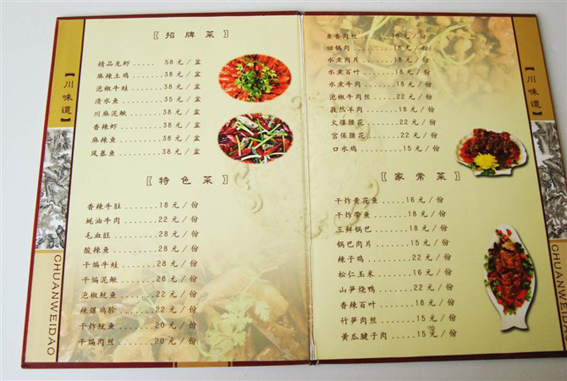 【招牌菜】
精品龙虾 ..... 58 元/盆
麻辣土鸡 ..... 38 元/盆
泡椒牛蛙 ..... 38 元/盆
清水鱼 ....... 38 元/盆
川麻泥鳅 ..... 38 元/盆
香辣虾 ....... 38 元/盆
麻辣鱼 ....... 38 元/盆
凤慕鱼 ....... 38 元/盆
【特色菜】
香辣牛肚 ....... 18 元/份
蚝油牛肉 ....... 22 元/份
毛血旺 ......... 28 元/份
酸辣鱼 ......... 28 元/份
干煸牛蛙 ....... 28 元/份
干煸泥鳅 ....... 28 元/份
泡椒鱿鱼 ....... 22 元/份
辣爆鸡胗 ....... 22 元/份
干炸鱿鱼 ....... 20 元/份
干煸肉丝 ....... 20 元/份
【川味道】
CHUANWEIDAO
鱼香肉丝 ....... 15 元/份
回锅肉 ......... 18 元/份
水煮肉片 ....... 18 元/份
水煮百叶 ....... 18 元/份
水煮牛肉 ....... 18 元/份
泡椒牛肉丝 ..... 22 元/份
孜然羊肉 ....... 22 元/份
火爆腰花 ....... 22 元/份
宫保腰花 ....... 22 元/份
口水鸡 ......... 15 元/份
【家常菜】
干炸黄花鱼 ..... 16 元/份
干炸带鱼 ....... 18 元/份
三鲜锅巴 ....... 18 元/份
锅巴肉片 ....... 15 元/份
辣子鸡 ......... 22 元/份
松仁玉米 ....... 16 元/份
山笋烧鸭 ....... 22 元/份
香辣百叶 ....... 18 元/份
竹笋肉丝 ....... 15 元/份
黄瓜腱子肉 ..... 15 元/份
【川味道】
CHUANWEIDAO